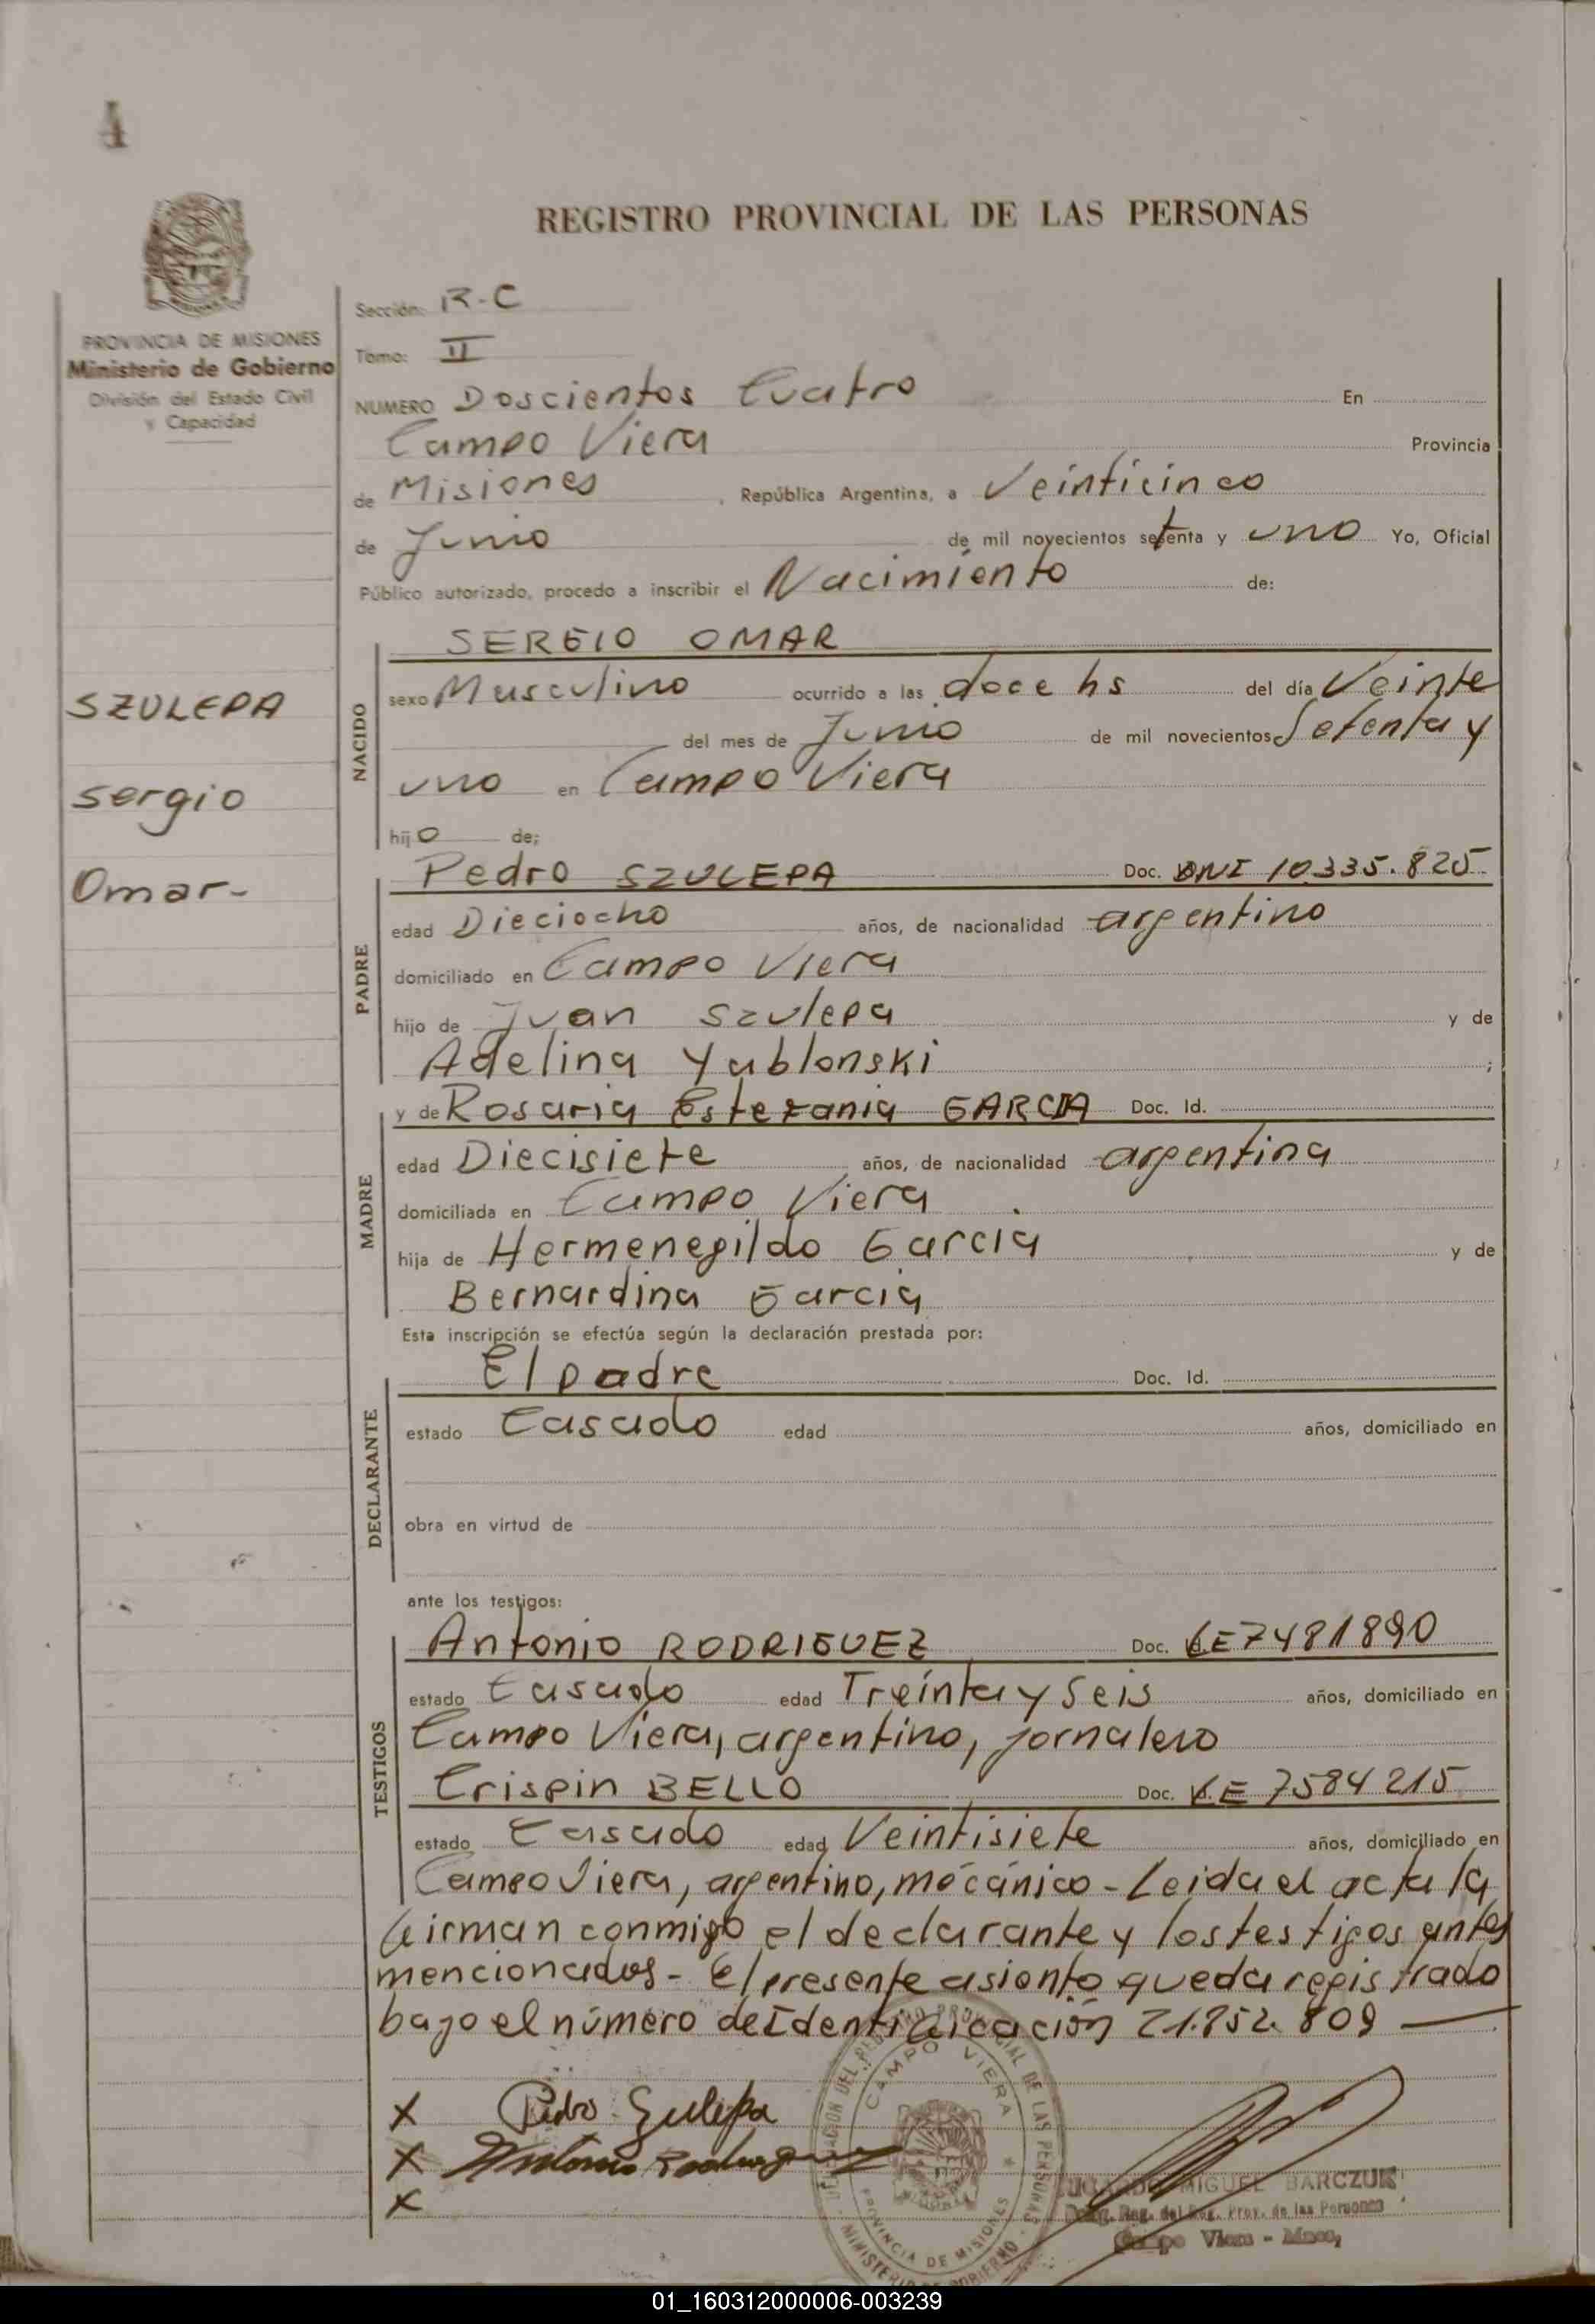 4
REGISTRO PROVINCIAL DE LAS PERSONAS
PROVINCIA DE MISIONES
Ministerio de Gobierno
División del Estado Civil
y Capacidad
Sección: R-C
Tomo: II
NUMERO Doscientos Cuatro En
Campo Viera Provincia
de Misiones , República Argentina, a Veinticinco
de Junio de mil novecientos setenta y uno Yo, Oficial
Público autorizado, procedo a inscribir el Nacimiento de:
SZULEPA
Sergio
Omar-
NACIDO
SERGIO OMAR
sexo Masculino ocurrido a las doce hs del día Veinte
del mes de Junio de mil novecientos Setenta y
uno en Campo Viera
hijo de;
PADRE
Pedro SZULEPA Doc. DNI 10.335.825
edad Dieciocho años, de nacionalidad argentino
domiciliado en Campo Viera
hijo de Juan Szulepa y de
Adelina Yablonski ;
MADRE
y de Rosaria Estefania GARCIA Doc. Id.
edad Diecisiete años, de nacionalidad argentina
domiciliada en Campo Viera
hija de Hermenegildo Garcia y de
Bernardina Garcia
Esta inscripción se efectúa según la declaración prestada por:
DECLARANTE
El padre Doc. Id.
estado Casado edad años, domiciliado en
obra en virtud de
ante los testigos:
TESTIGOS
Antonio RODRIGUEZ Doc. LE 7481890
estado Casado edad Treinta y Seis años, domiciliado en
Campo Viera, argentino, jornalero
Crispin BELLO Doc. LE 7584215
estado Casado edad Veintisiete años, domiciliado en
Campo Viera, argentino, mécánico - Leida el acta la
firman conmigo el declarante y los testigos antes
mencionados - El presente asiento queda registrado
bajo el número de Identificación 21.852.809 —
X Pedro Sulepa
X Antonio Rodriguez
X
DELEGACION DEL REGISTRO PROVINCIAL DE LAS PERSONAS
CAMPO VIERA
PROVINCIA DE MISIONES
MINISTERIO DE GOBIERNO
MIGUEL BARCZUK
Deleg. Reg. del Reg. Prov. de las Personas
Campo Viera - Mnes.
01_160312000006-003239